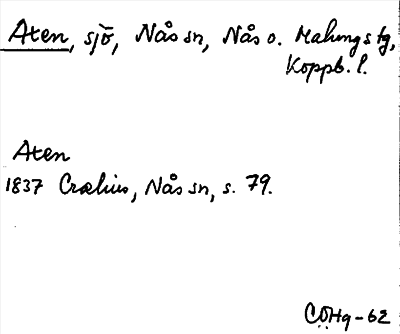 Aten, sjö, Nås sn, Nås o. Malungs tg,
Koppb. l.
Aten
1837 Crælius, Nås sn, s. 79.
CÖHg-62